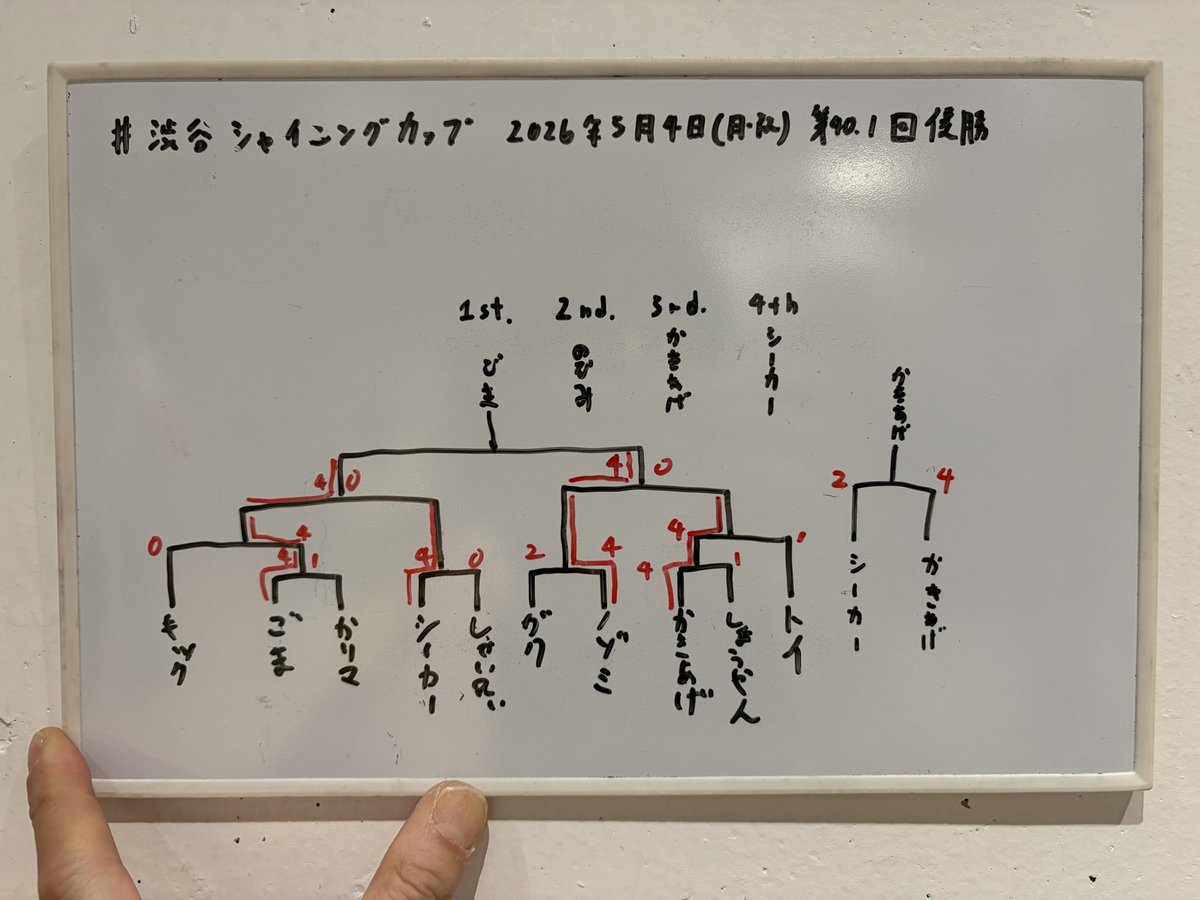 #渋谷シャイニングカップ 2026年5月4日(月・祝) 第90.1回優勝
1st. 2nd. 3nd. 4th
びま のびみ かきあげ シーカー
かきあげ
4 0 4 0 2 4
0 4 4 1
4 1 4 0 2 4 4 1
シーカー かきあげ
キック ごま かリマ シーカー グク ノゾミ かきあげ トイ